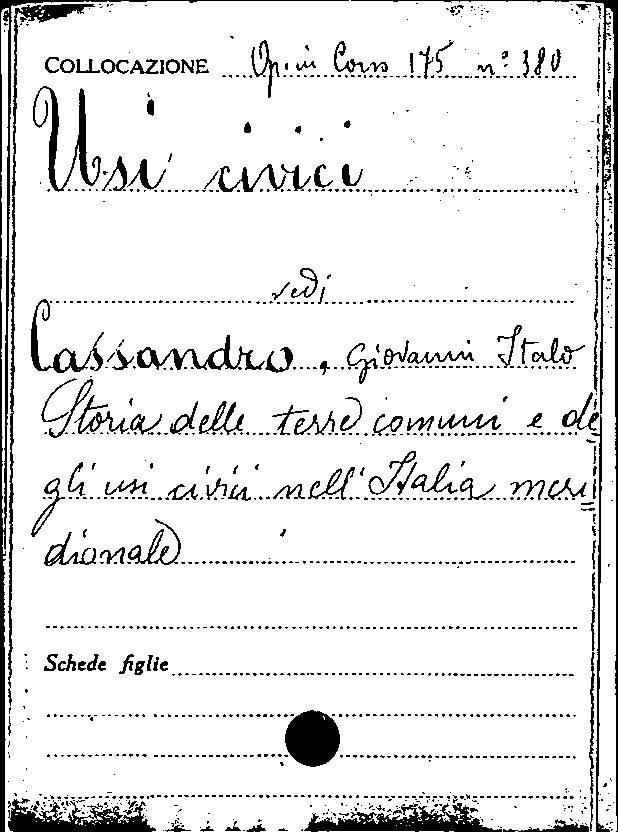 COLLOCAZIONE Op. in Cons 175 n° 380
Usi civici
vedi
Cassandro, Giovanni Italo
Storia delle terre comuni e de=
gli usi civici nell'Italia meri=
dionale
Schede figlie